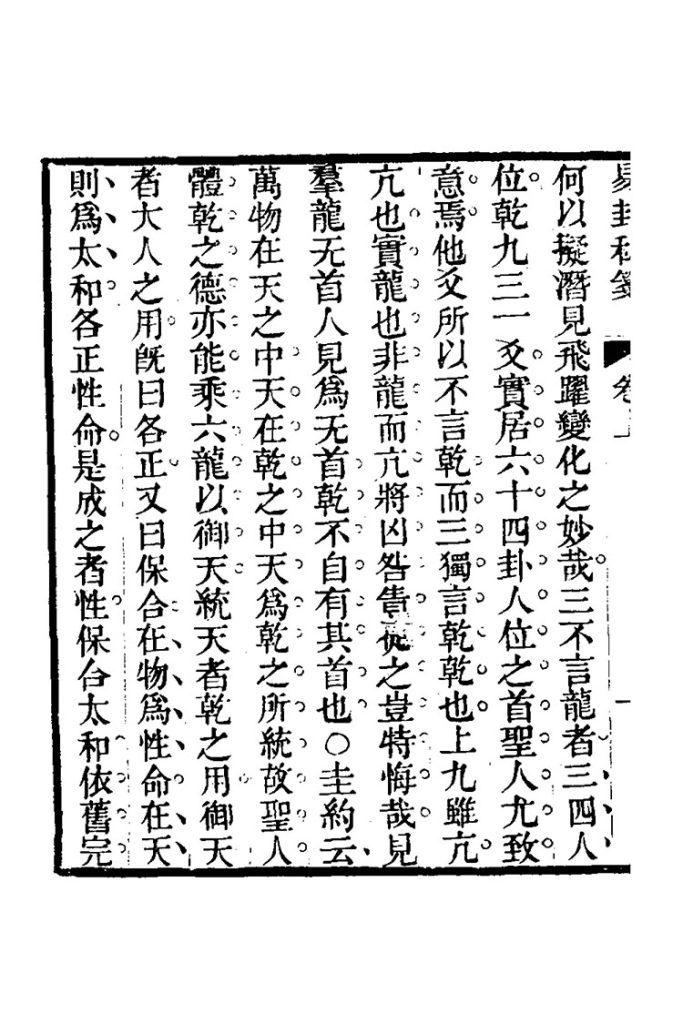 何以擬潛見飛躍變化之妙哉三不言龍者三四人
位乾九三一爻實居六十四卦人位之首聖人尤致
意焉他爻所以不言乾而三獨言乾乾也上九雖亢
亢也實龍也非龍而亢將凶咎責從之豈特悔哉見
羣龍无首人見爲无首乾不自有其首也○圭約云
萬物在天之中天在乾之中天爲乾之所統故聖人
體乾之德亦能乘六龍以御天統天者乾之用御天
者大人之用旣曰各正又曰保合在物爲性命在天
則爲太和各正性命是成之者性保合太和依舊完